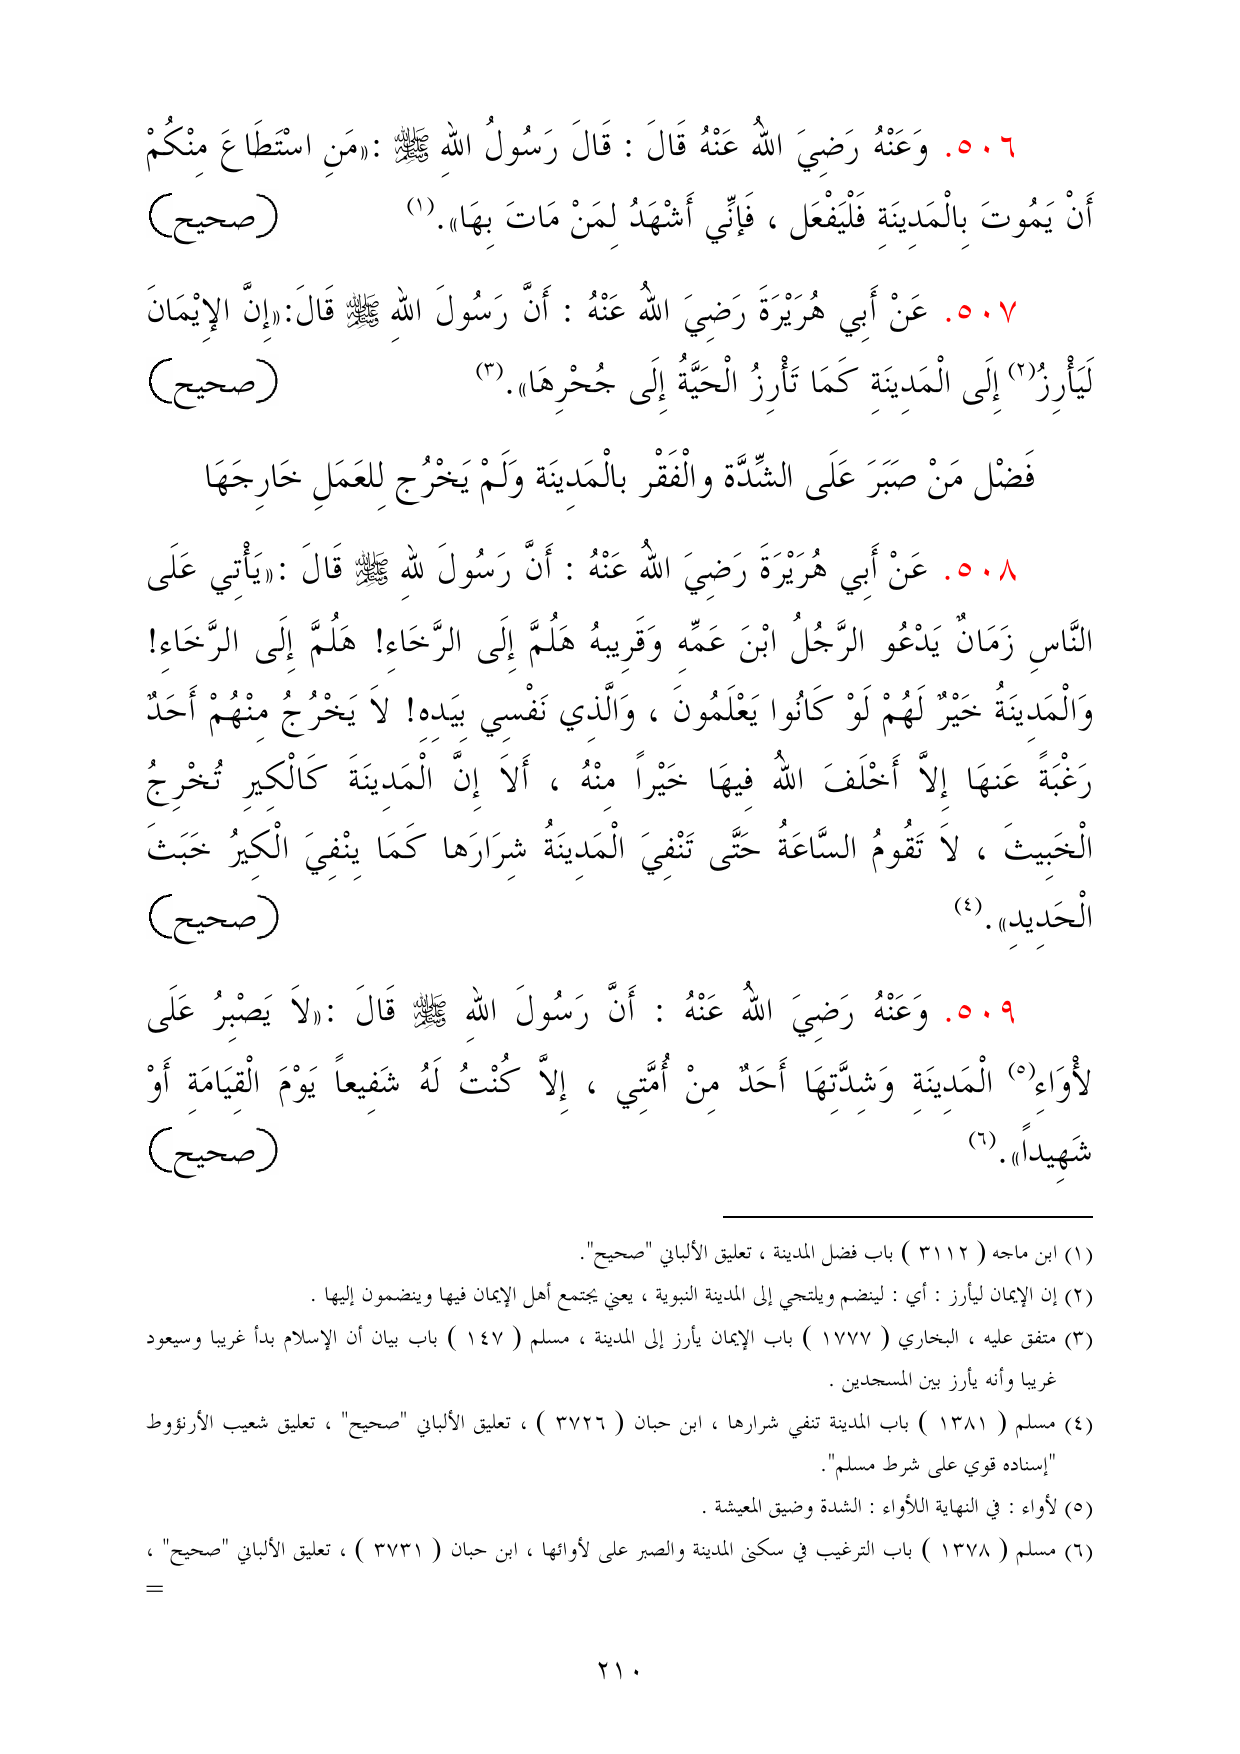 ٥٠٦. وَعَنْهُ رَضِيَ اللهُ عَنْهُ قَالَ : قَالَ رَسُولُ اللهِ ﷺ :«مَنِ اسْتَطَاعَ مِنْكُمْ
أَنْ يَمُوتَ بِالْمَدِينَةِ فَلْيَفْعَل ، فَإِنِّي أَشْهَدُ لِمَنْ مَاتَ بِهَا».(١) (صحيح)
٥٠٧. عَنْ أَبِي هُرَيْرَةَ رَضِيَ اللهُ عَنْهُ : أَنَّ رَسُولَ اللهِ ﷺ قَالَ:«إِنَّ الإِيْمَانَ
لَيَأْرِزُ(٢) إِلَى الْمَدِينَةِ كَمَا تَأْرِزُ الْحَيَّةُ إِلَى جُحْرِهَا».(٣) (صحيح)
فَضْل مَنْ صَبَرَ عَلَى الشِّدَّة والْفَقْر بالْمَدِينَة وَلَمْ يَخْرُج لِلعَمَلِ خَارِجَهَا
٥٠٨. عَنْ أَبِي هُرَيْرَةَ رَضِيَ اللهُ عَنْهُ : أَنَّ رَسُولَ للهِ ﷺ قَالَ :«يَأْتِي عَلَى
النَّاسِ زَمَانٌ يَدْعُو الرَّجُلُ ابْنَ عَمِّهِ وَقَرِيبهُ هَلُمَّ إِلَى الرَّخَاءِ! هَلُمَّ إِلَى الرَّخَاءِ!
وَالْمَدِينَةُ خَيْرٌ لَهُمْ لَوْ كَانُوا يَعْلَمُونَ ، وَالَّذِي نَفْسِي بِيَدِهِ! لاَ يَخْرُجُ مِنْهُمْ أَحَدٌ
رَغْبَةً عَنهَا إِلاَّ أَخْلَفَ اللهُ فِيهَا خَيْراً مِنْهُ ، أَلاَ إِنَّ الْمَدِينَةَ كَالْكِيرِ تُخْرِجُ
الْخَبِيثَ ، لاَ تَقُومُ السَّاعَةُ حَتَّى تَنْفِيَ الْمَدِينَةُ شِرَارَها كَمَا يِنْفِيَ الْكِيرُ خَبَثَ
الْحَدِيدِ».(٤) (صحيح)
٥٠٩. وَعَنْهُ رَضِيَ اللهُ عَنْهُ : أَنَّ رَسُولَ اللهِ ﷺ قَالَ :«لاَ يَصْبِرُ عَلَى
لأْوَاءِ(٥) الْمَدِينَةِ وَشِدَّتِهَا أَحَدٌ مِنْ أُمَّتِي ، إِلاَّ كُنْتُ لَهُ شَفِيعاً يَوْمَ الْقِيَامَةِ أَوْ
شَهِيداً».(٦) (صحيح)
(١) ابن ماجه ( ٣١١٢ ) باب فضل المدينة ، تعليق الألباني "صحيح".
(٢) إن الإيمان ليأرز : أي : لينضم ويلتجي إلى المدينة النبوية ، يعني يجتمع أهل الإيمان فيها وينضمون إليها .
(٣) متفق عليه ، البخاري ( ١٧٧٧ ) باب الإيمان يأرز إلى المدينة ، مسلم ( ١٤٧ ) باب بيان أن الإسلام بدأ غريبا وسيعود
غريبا وأنه يأرز بين المسجدين .
(٤) مسلم ( ١٣٨١ ) باب المدينة تنفي شرارها ، ابن حبان ( ٣٧٢٦ ) ، تعليق الألباني "صحيح" ، تعليق شعيب الأرنؤوط
"إسناده قوي على شرط مسلم".
(٥) لأواء : في النهاية اللأواء : الشدة وضيق المعيشة .
(٦) مسلم ( ١٣٧٨ ) باب الترغيب في سكنى المدينة والصبر على لأوائها ، ابن حبان ( ٣٧٣١ ) ، تعليق الألباني "صحيح" ،
=
٢١٠